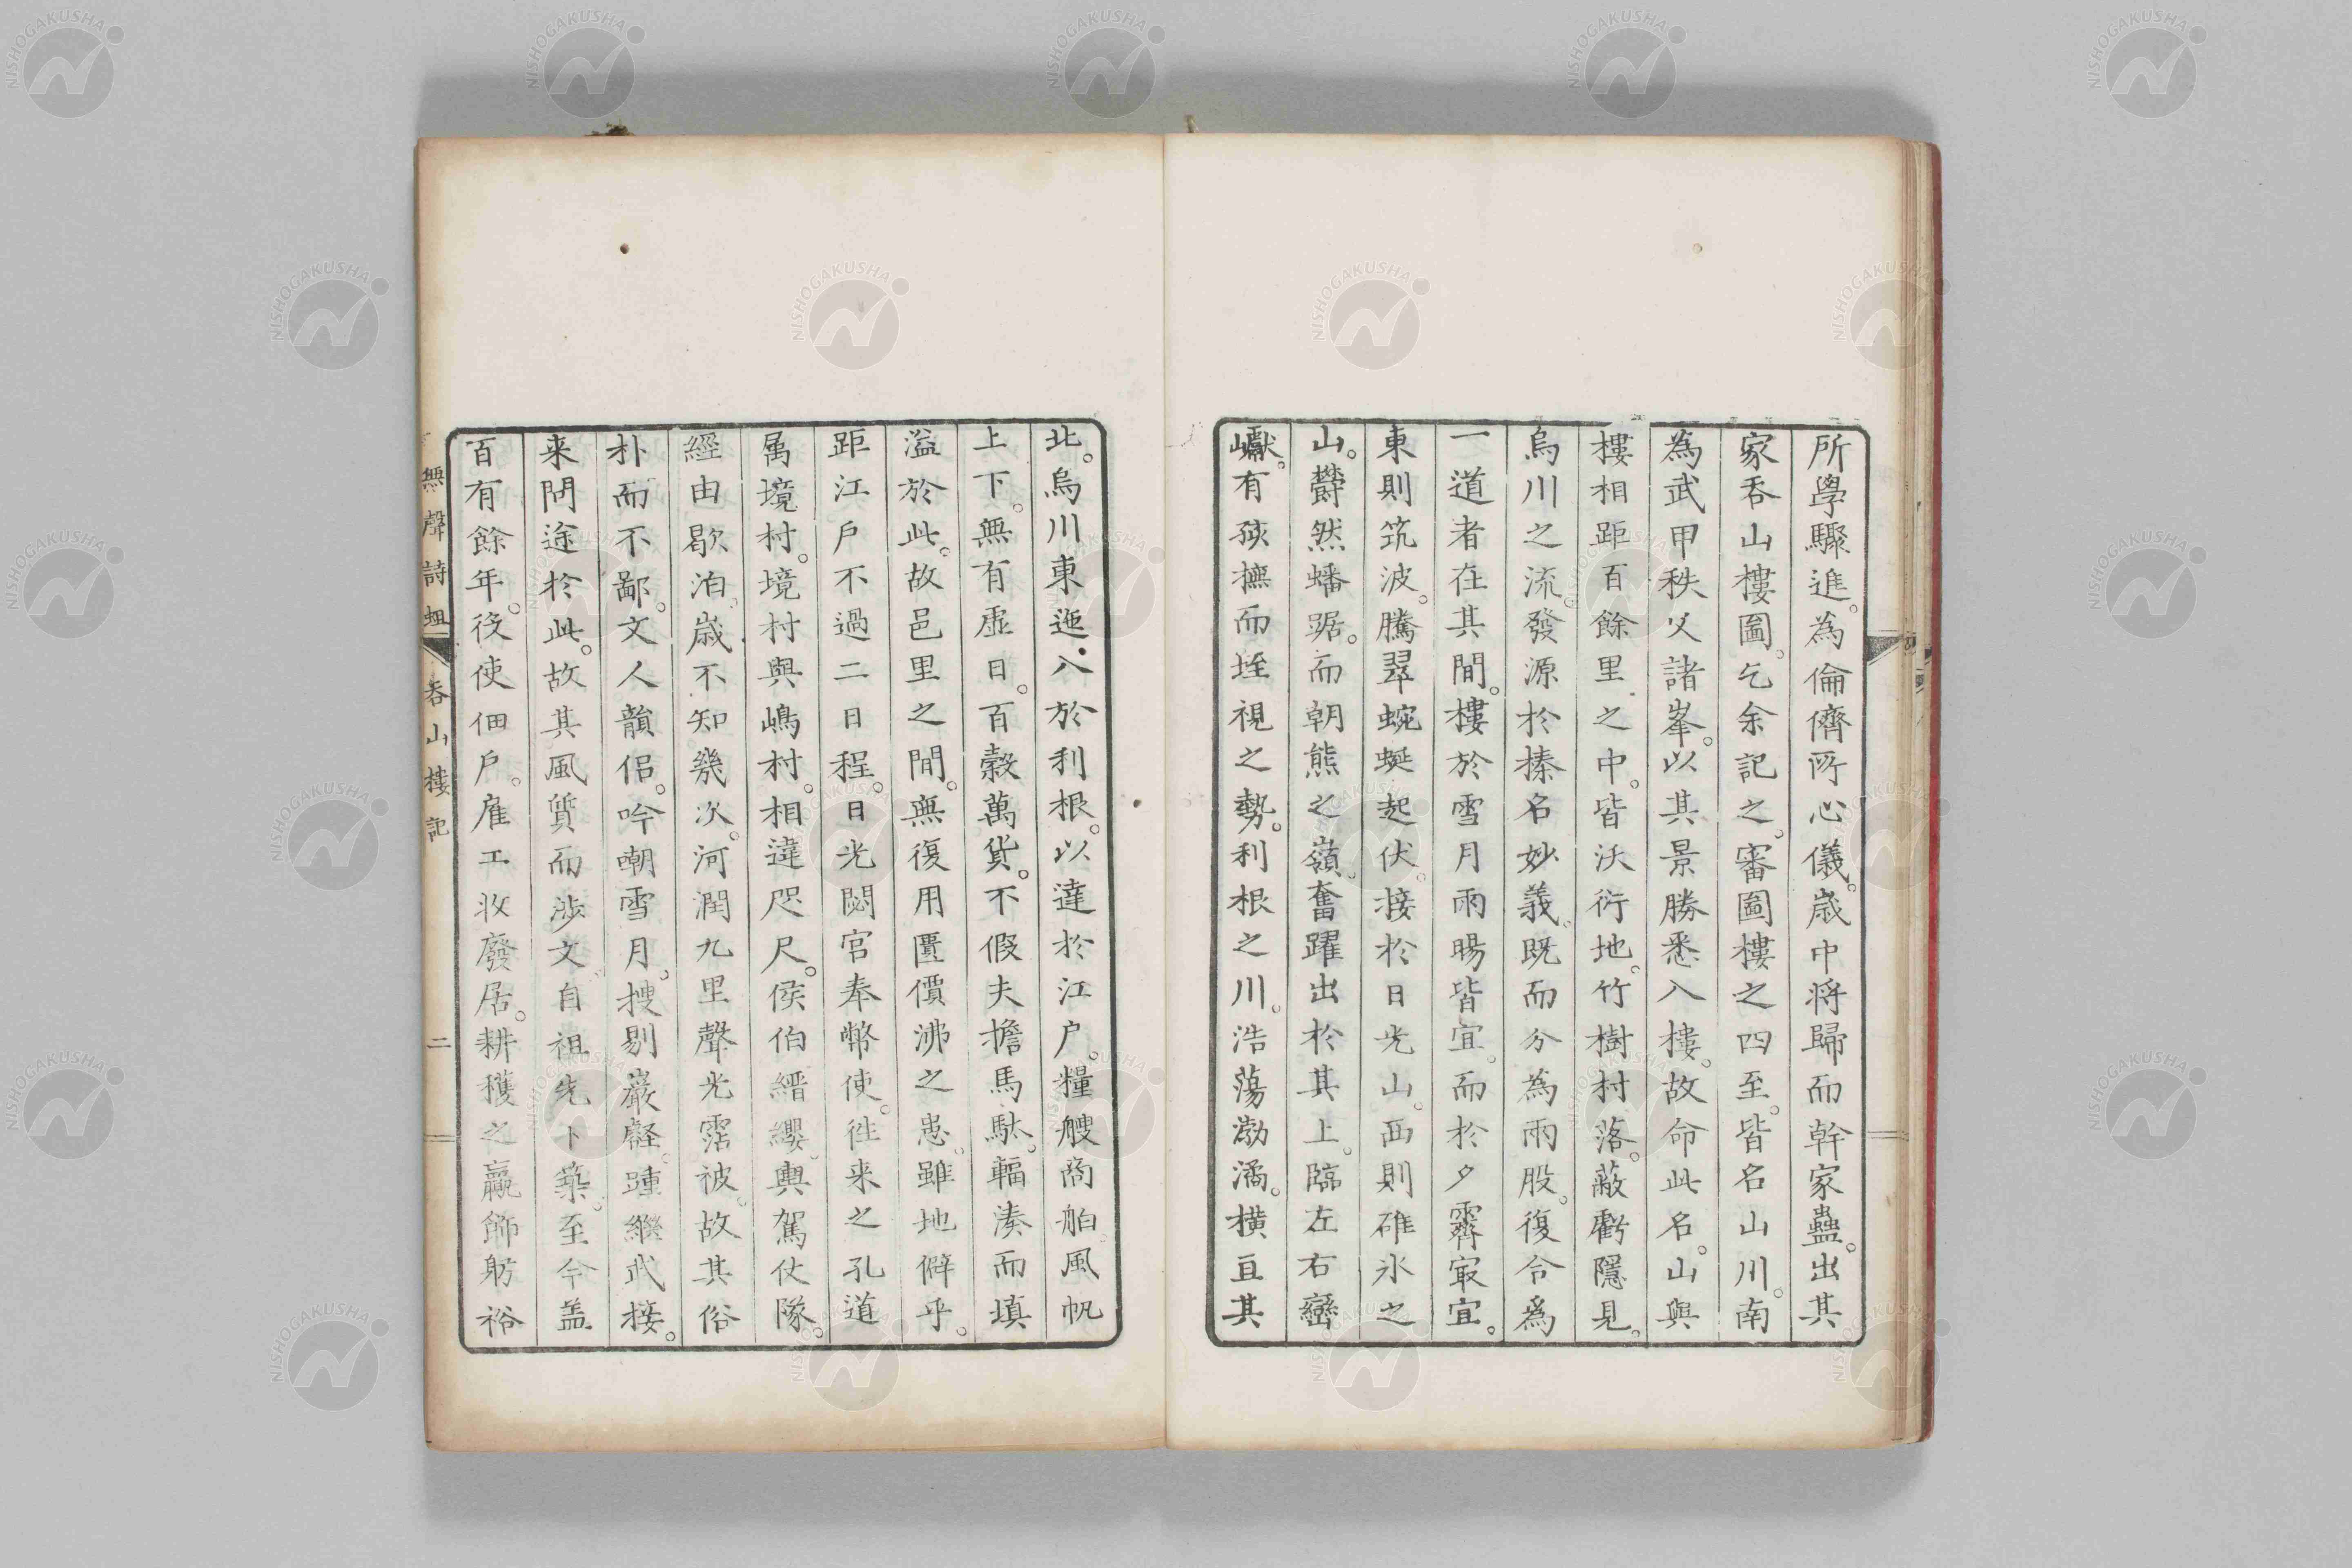 所學驟進。為倫儕所心儀。歳中将歸而幹家蠱。出其
家吞山樓圖。乞余記之。審圖樓之四至。皆名山川。南
為武甲秩父諸峯。以其景勝悉入樓。故命此名。山與
樓相距百餘里之中。皆沃衍地。竹樹村落。蔽虧隱見。
烏川之流。發源於榛名妙義。既而分為兩股。復合爲
一道者在其間。樓於雪月雨暘皆宜。而於夕霽㝡宜。
東則筑波。騰翠蜿蜒起伏。接於日光山。西則碓氷之
山。欝然蟠踞。而朝熊之嶺。奮躍出於其上。臨左右巒
巘。有孩撫而垤視之勢。利根之川。浩蕩渤潏。横亘其
北。烏川東迤。入於利根。以達於江户。糧艘商舶風帆
上下。無有虚日。百穀萬貨。不假夫擔馬駄。輻湊而填
溢於此。故邑里之間。無復用匱價沸之患。雖地僻乎。
距江戶不過二日程。日光閟宮奉幣使。徃来之孔道
属境村。境村與嶋村。相違咫尺。侯伯縉纓輿駕仗隊。
經由歇泊。歳不知幾次。河潤九里聲光霑被。故其俗
朴而不鄙。文人韻侶。吟嘲雪月。搜剔巖壑。踵繼武接。
来問途於此。故其風質而渉文自祖先卜築。至今盖
百有餘年。役使佃戶。雇工收廢居。耕穫之贏。飾躬裕
無聲詩 吞山樓記 二
NISHOGAKUSHA